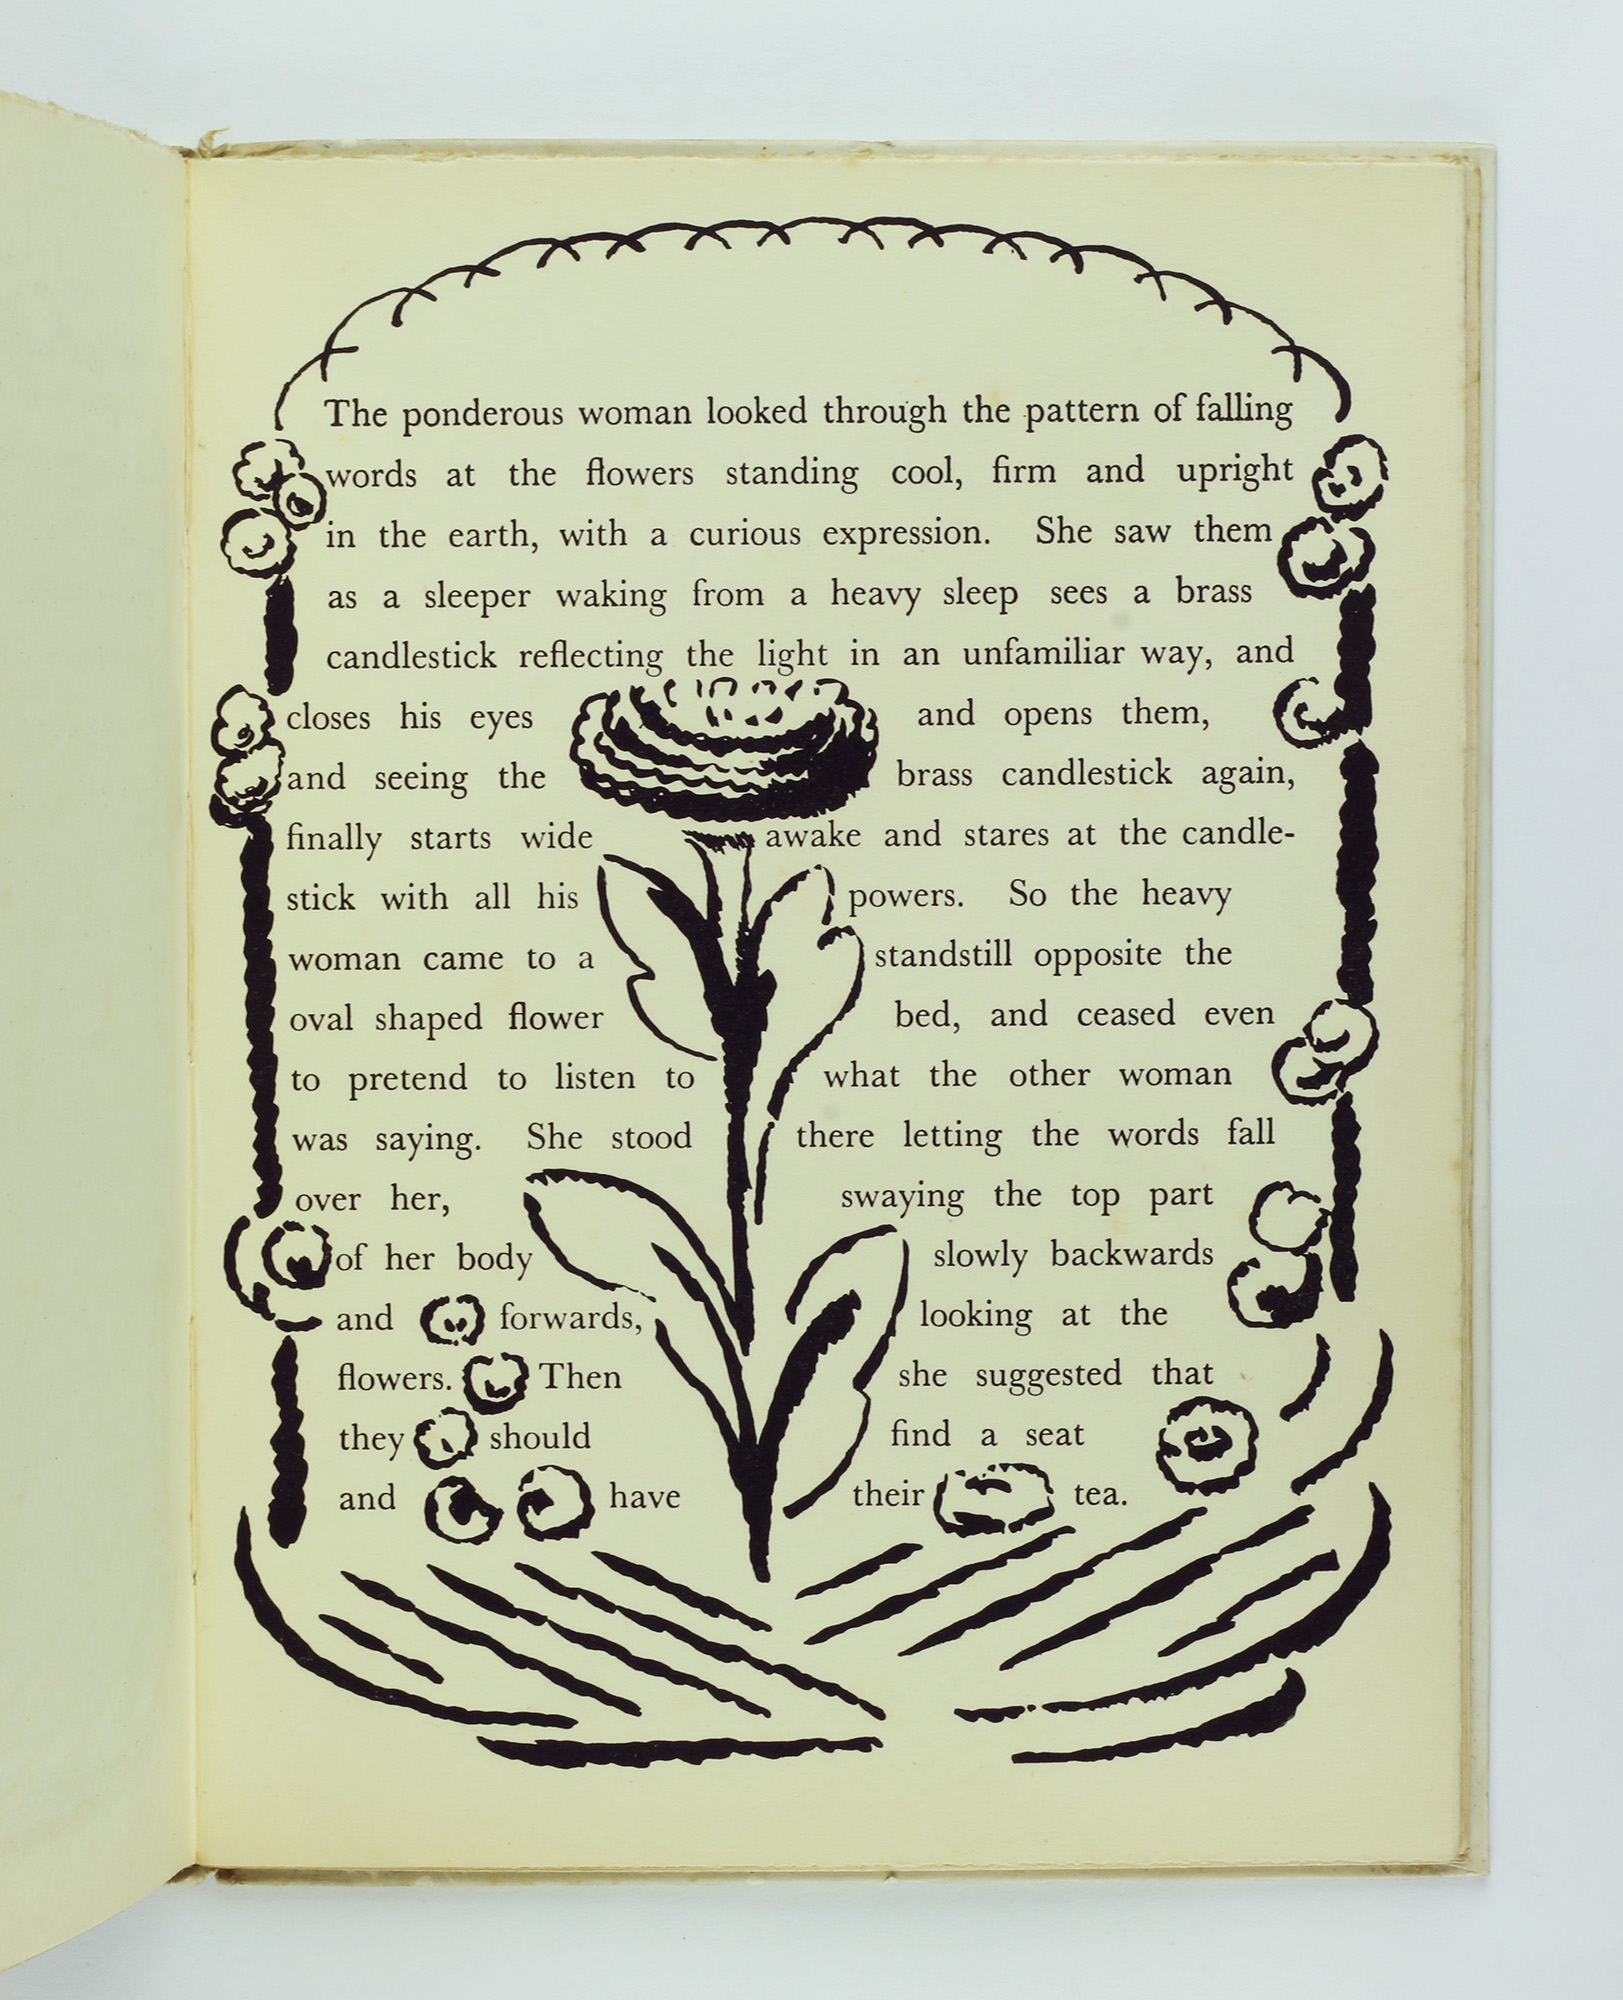 The ponderous woman looked through the pattern of falling
words at the flowers standing cool, firm and upright
in the earth, with a curious expression. She saw them
as a sleeper waking from a heavy sleep sees a brass
candlestick reflecting the light in an unfamiliar way, and
closes his eyes and opens them,
and seeing the brass candlestick again,
finally starts wide awake and stares at the candle-
stick with all his powers. So the heavy
woman came to a standstill opposite the
oval shaped flower bed, and ceased even
to pretend to listen to what the other woman
was saying. She stood there letting the words fall
over her, swaying the top part
of her body slowly backwards
and forwards, looking at the
flowers. Then she suggested that
they should find a seat
and have their tea.